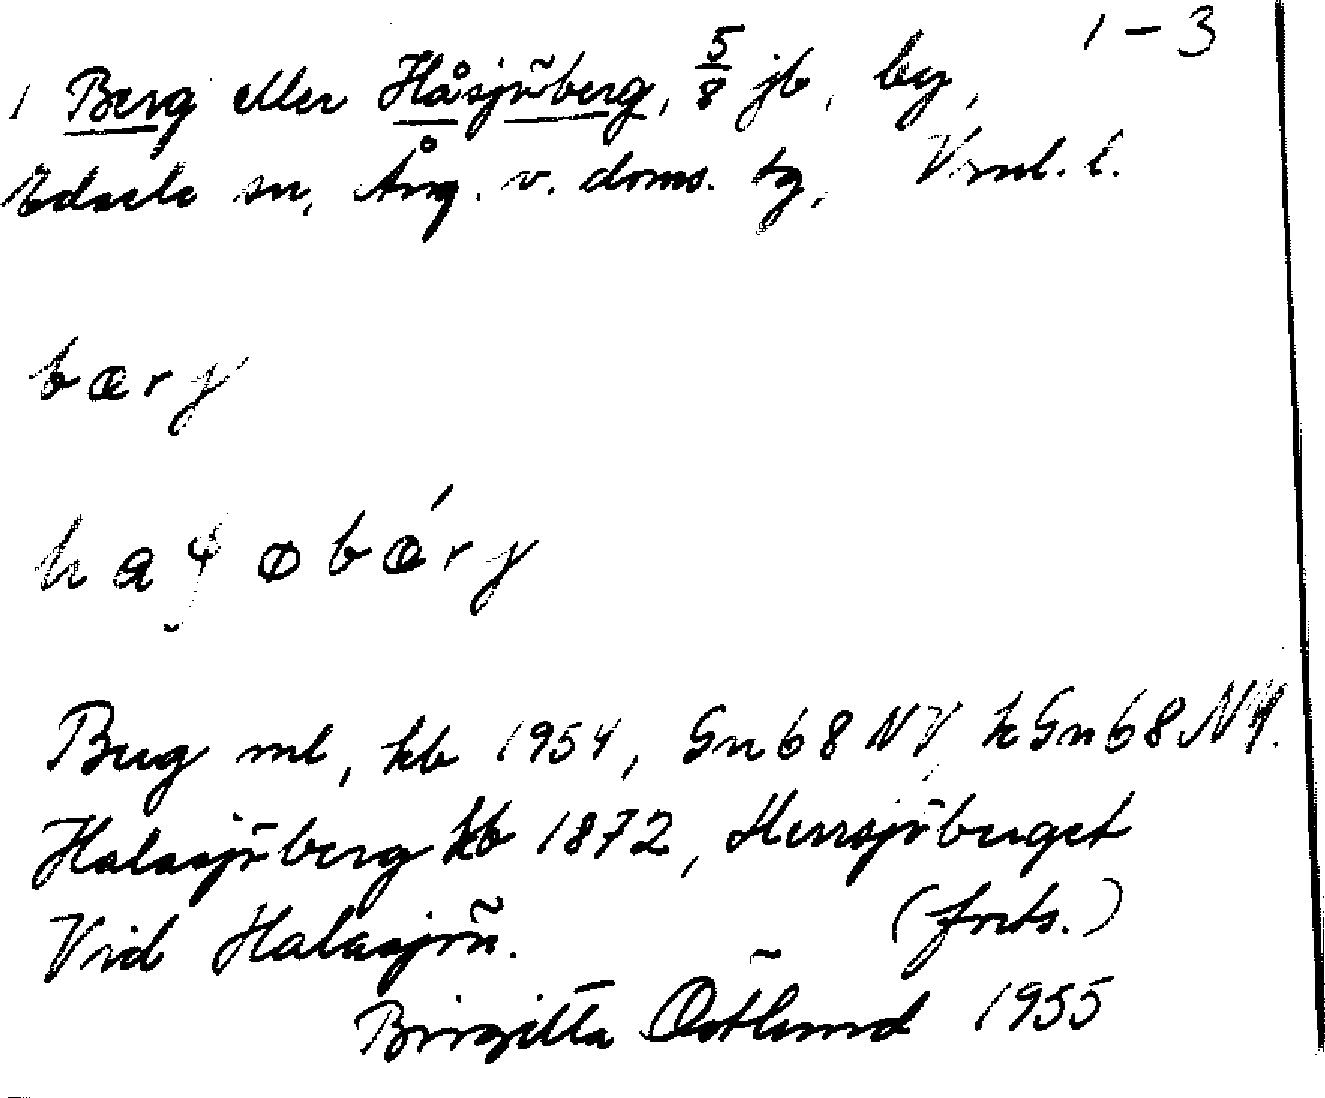 1-3
1 Berg eller Håsjöberg, 5/8 jb, by,
Edsele sn, Ång. v. doms. tg, Vrnl. l.
bærg
ha obǽrg
Berg ml, kb 1954, Gn 68 NV, k Gn 68 NV.
Halasjöberg kb 1872, Herrsjöberget
Vid Halasjön. (forts.)
Birgitta Östlund 1955